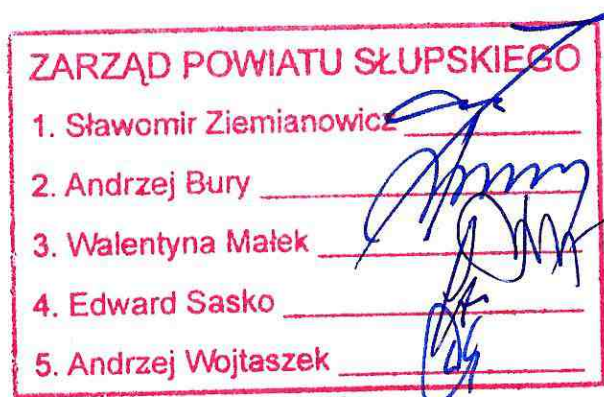 ZARZĄD POWIATU SŁUPSKIEGO
1. Sławomir Ziemianowicz
2. Andrzej Bury
3. Walentyna Małek
4. Edward Sasko
5. Andrzej Wojtaszek